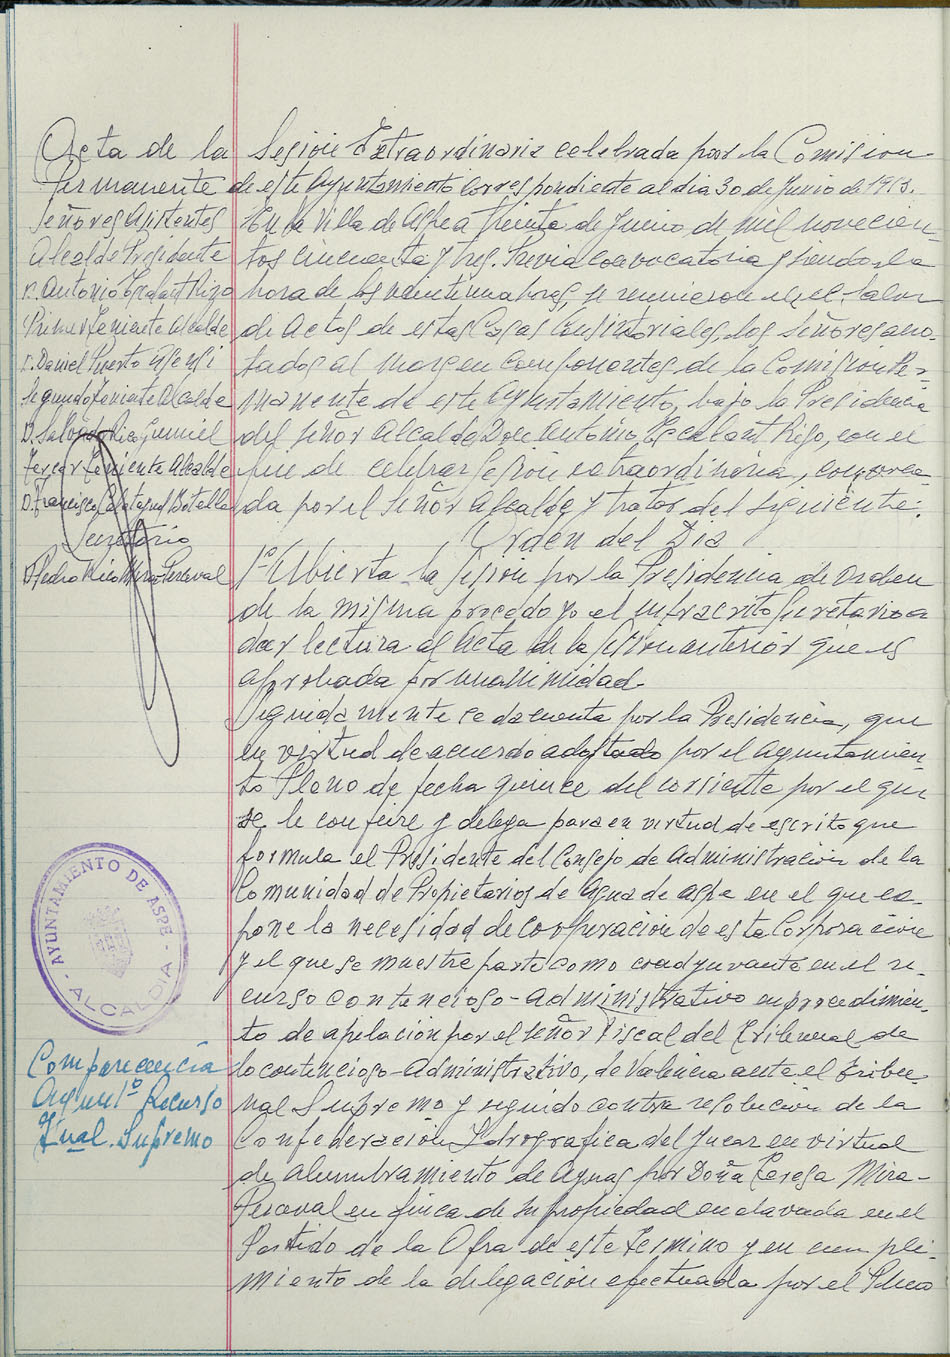 Acta de la Sesión Extraordinaria celebrada por la Comision
Permanente de este Ayuntamiento correspondiente al dia 30 de Junio de 1953.
Señores Asistentes
Alcalde Presidente
D. Antonio Escalant Rizo
Primer Teniente Alcalde
D. Daniel Puerto Asensi
Segundo Teniente Alcalde
D. Salvador Rico Gumiel
Tercer Teniente Alcalde
D. Francisco Calatayud Botella
Secretario
D. Pedro Rico Mira-Perceval
En la Villa de Aspe a treinta de Junio de mil novecien-
tos cincuenta y tres. Previa convocatoria y siendo la
hora de las veintiuna horas, se reunieron en el Salon
de Actos de estas Casas Consistoriales, los Señores ano-
tados al margen componentes de la Comision Per-
manente de este Ayuntamiento, bajo la Presidencia
del Señor Alcalde Don Antonio Escalant Rizo, con el
fin de celebrar Sesión extraordinaria, convoca-
da por el Señor Alcalde y tratar del siguiente:
Orden del Dia
1º Abierta la Sesión por la Presidencia de orden
de la misma procedo yo el infrascrito Secretario a
dar lectura al Acta de la sesion anterior que es
aprobada por unanimidad.
Seguidamente se da cuenta por la Presidencia, que
en virtud de acuerdo adoptado por el Ayuntamien-
to Pleno de fecha quince del corriente por el que
se le confiere y delega para en virtud de escrito que
formula el Presidente del Consejo de Administración de la
Comunidad de Propietarios de Agua de Aspe en el que ex-
pone la necesidad de cooperación de esta Corporación
y el que se muestre parte como coadyuvante en el re-
curso contencioso-administrativo en procedimien-
to de apelación por el Señor Fiscal del Tribunal de
lo contencioso-Administrativo, de Valencia ante el Tribu-
nal Supremo y seguido contra resolución de la
Confederación Hidrografica del Jucar en virtud
de alumbramiento de Aguas por Doña Teresa Mira-
Perceval en finca de su propiedad enclavada en el
Partido de la Ofra de este Termino y en cumpli-
miento de la delegación efectuada por el Pleno
AYUNTAMIENTO DE ASPE
- ALCALDIA -
Comparecencia
Ayunto Recurso
Tnal. Supremo